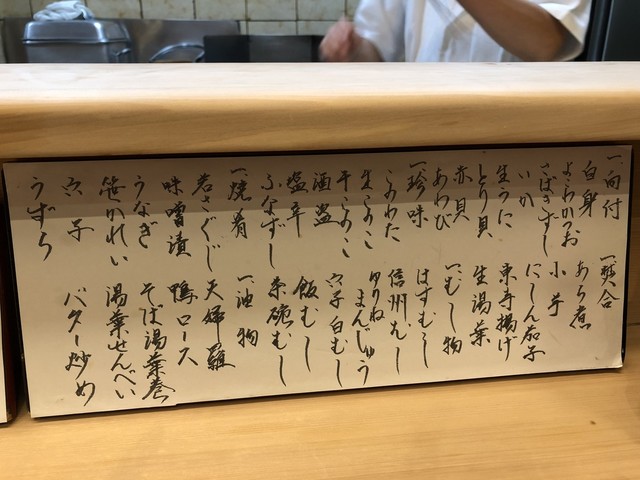 一向付
白身
よこわかつお
さばきずし
いか
生うに
とり貝
赤貝
あわび
一珍味
このわた
生このこ
干このこ
酒盗
塩辛
ふなずし
一焼肴
若さぐじ
味噌漬
うなぎ
笹かれい
穴子
うずら
一焚合
あら煮
小芋
にしん茄子
東寺揚げ
生湯葉
一むし物
はすむし
信州むし
ゆりねまんじゅう
穴子白むし
飯むし
茶碗むし
一油物
天婦羅
鴨ロース
そば湯葉巻
湯葉せんべい
バター炒め